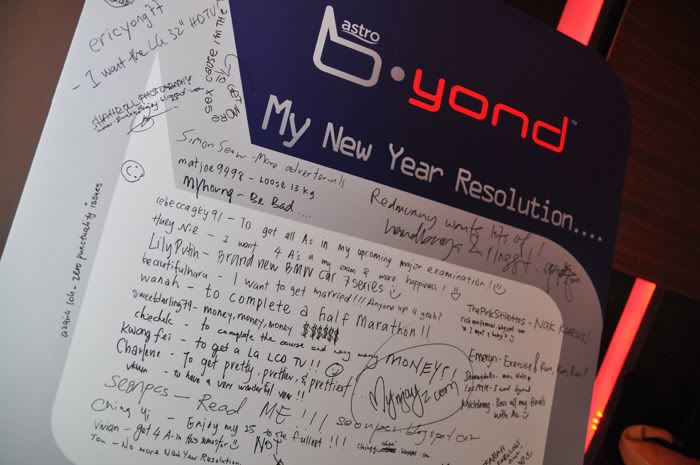 astro
b.yond™
My New Year Resolution....
ericyong77
- I want the LG 32" HDTV
cause im the
GET MORE
Simon Seow - More advertorials
matjoe9498 - Loose 13 kg
Myhoung - Be Bad ....
Redmummy wants lots of
handbags & ringgit!
azana loh - zero punctuality issues
rebeccagky91 - To got all As in my upcoming major examination!!
Huey Nie - I want 4 A's in my exam & more happiness!
LilyPutih - Brand new BMW car 7 series
beautifulnara - I want to get married!!! Anyone up 4 grabs?
wanah - to complete a half Marathon!!
sweetdarling79 - money, money, money $$$$$$
- to complete the course and earn money
Kwong Fei - to get a LG LCD TV!!
Charlene - To get pretty, prettier, & prettiest...
- to have a very wonderful year!!
MONEYS!
Mymayz.com
ThePinkStilettos - NAK KURUS!
Emeryn - Exercise! Run, Run, Run!
- Pass all my finals
with As
seonpcs - Read ME!!!
seonpcs.blogspot.com
Ching Yi - Enjoy my 25 to the fullest!!!
Vivian - get 4 A in this semester
NO!
Tan - No more New Year Resolution